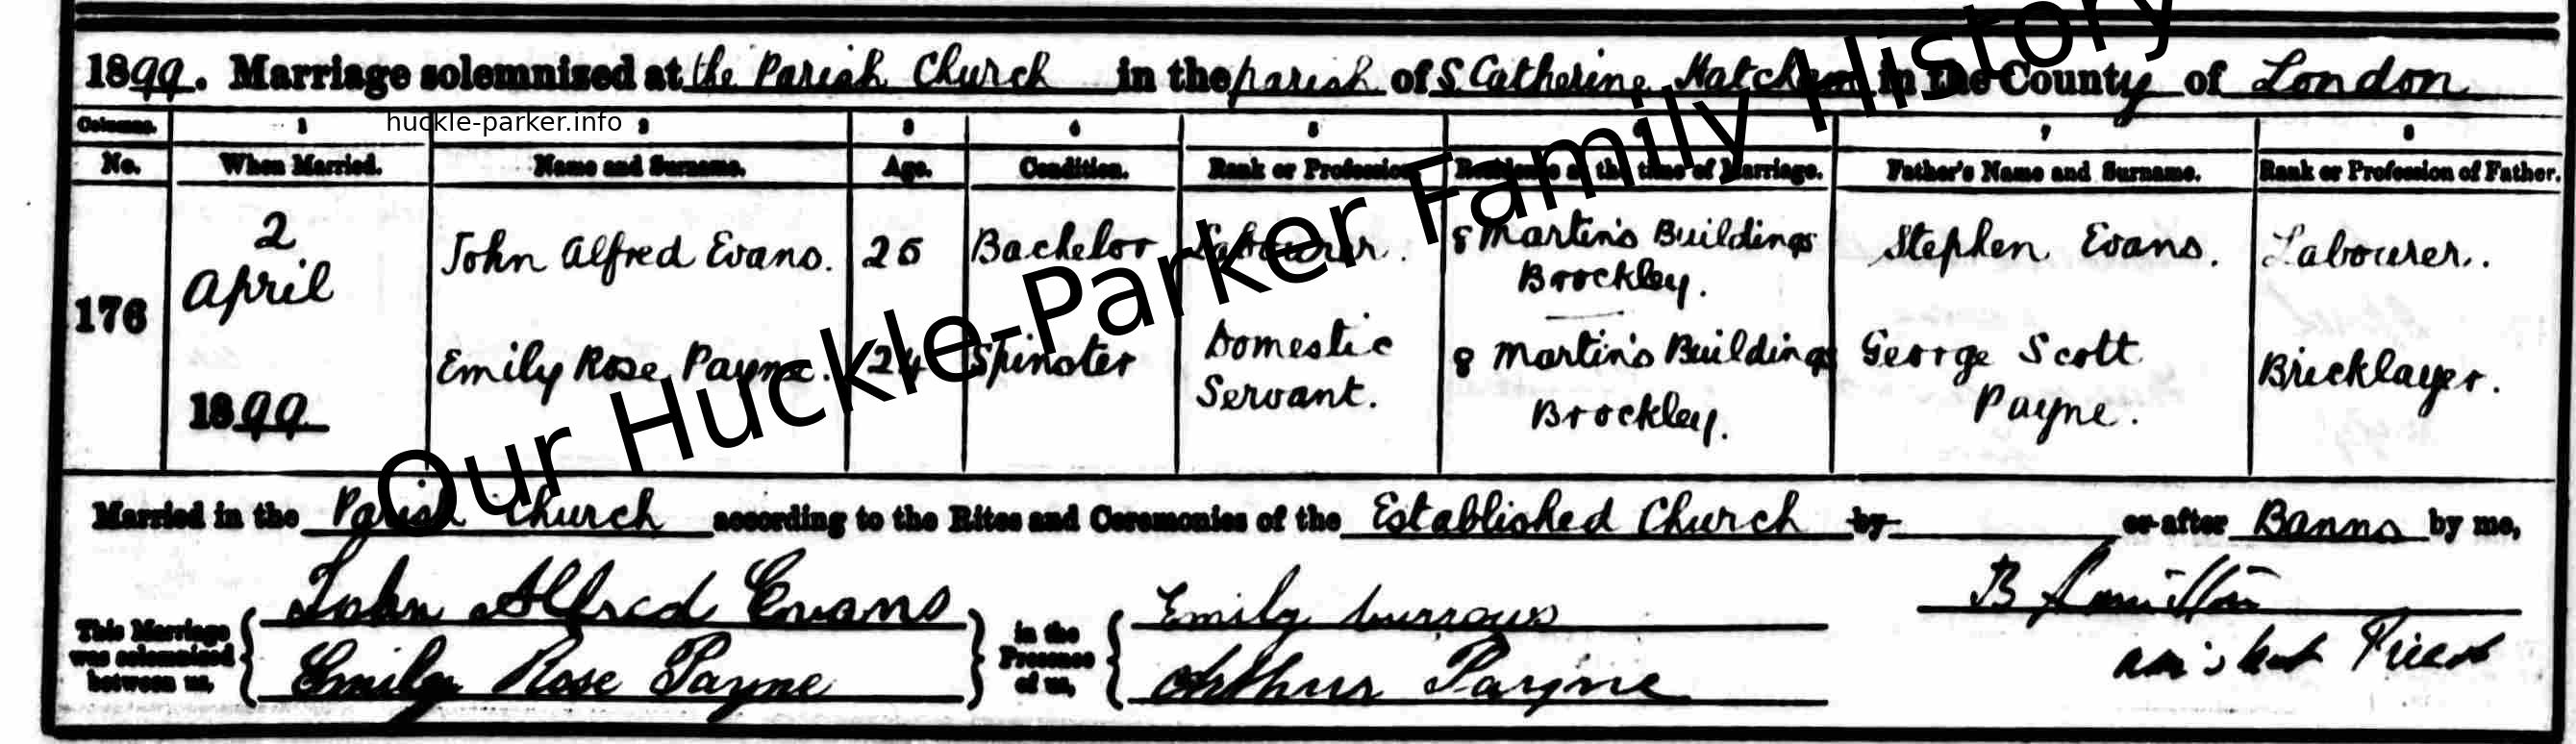 1899. Marriage solemnized at the Parish Church in the parish of S. Catherine Hatcham in the County of London
Columns. 1 2 3 4 5 6 7 8
huckle-parker.info
No. When Married. Name and Surname. Age. Condition. Rank or Profession. Residence at the time of Marriage. Father's Name and Surname. Rank or Profession of Father.
176
2 April 1899
John Alfred Evans. Bachelor Labourer. 8 Martin's Buildings Brockley. Stephen Evans. Labourer.
Emily Rose Payne. 24 Spinster Domestic Servant. 8 Martin's Buildings Brockley. George Scott Payne. Bricklayer.
Our Huckle-Parker Family History
Married in the Parish Church according to the Rites and Ceremonies of the Established Church by or after Banns by me,
This Marriage was solemnized between us, John Alfred Evans
Emily Rose Payne
in the Presence of us, Emily burrows
Arthur Payne
B
Priest